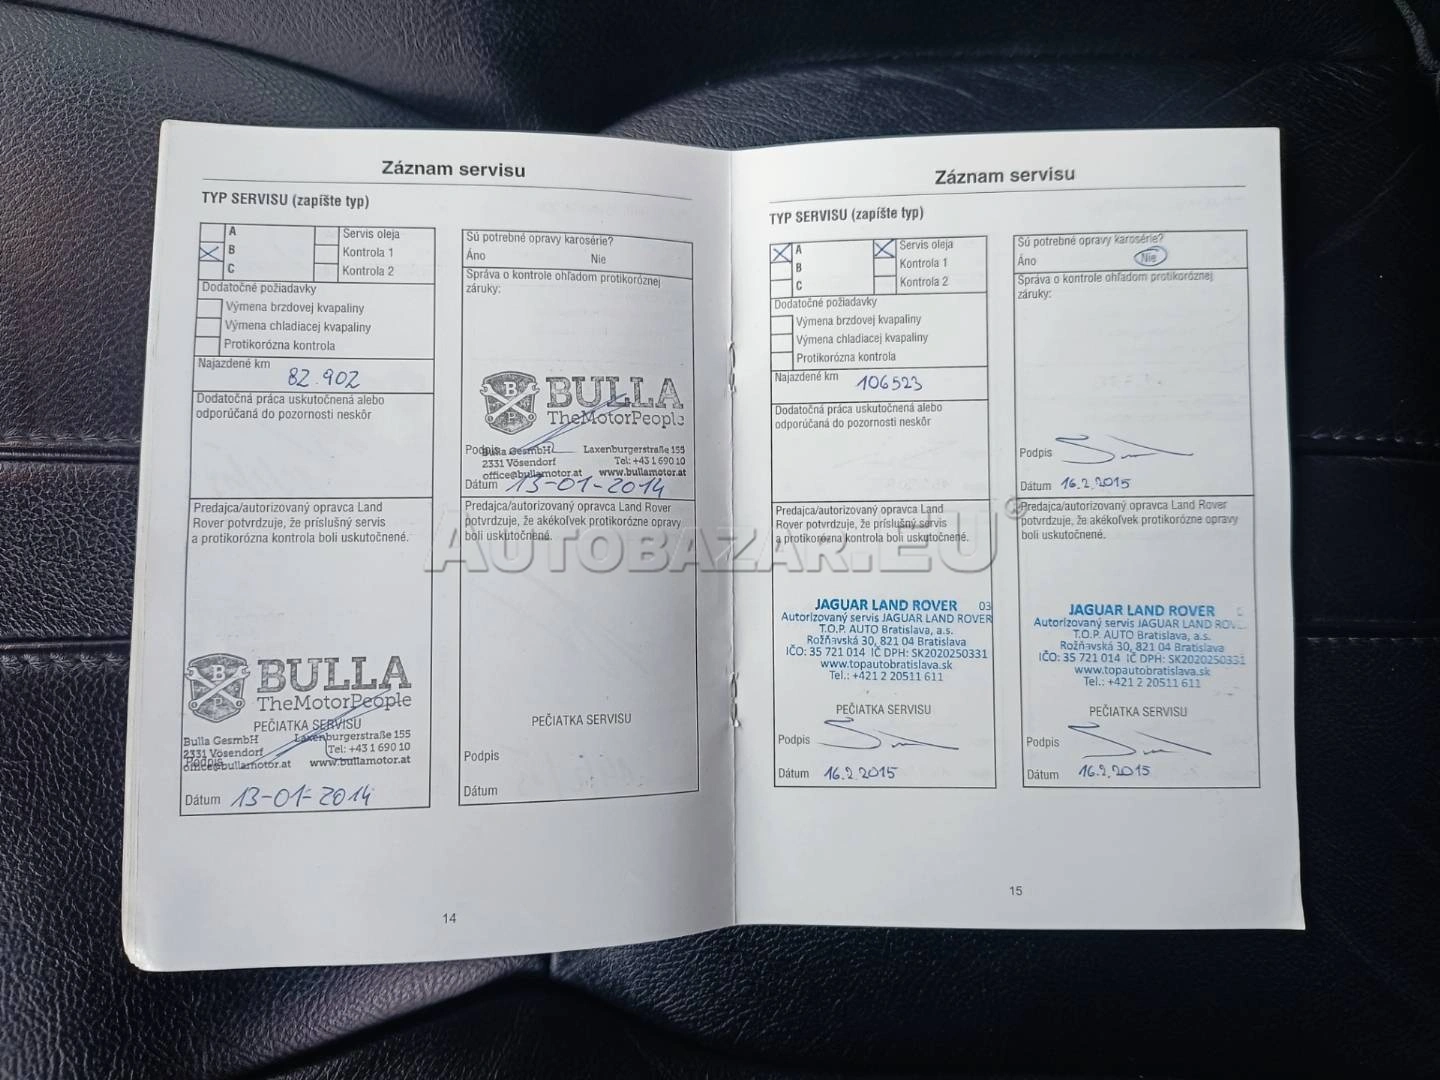 Záznam servisu
TYP SERVISU (zapíšte typ)
A
B
C
Servis oleja
Kontrola 1
Kontrola 2
Dodatočné požiadavky
Výmena brzdovej kvapaliny
Výmena chladiacej kvapaliny
Protikorózna kontrola
Najazdené km
82.902
Dodatočná práca uskutočnená alebo
odporúčaná do pozornosti neskôr
Predajca/autorizovaný opravca Land
Rover potvrdzuje, že príslušný servis
a protikorózna kontrola boli uskutočnené.
BULLA
TheMotorPeople
PEČIATKA SERVISU
Bulla GesmbH Laxenburgerstraße 155
2331 Vösendorf Tel: +43 1 690 10
Podpis
office@bullamotor.at www.bullamotor.at
Dátum 13-01-2014
Sú potrebné opravy karosérie?
Áno Nie
Správa o kontrole ohľadom protikoróznej
záruky:
BULLA
TheMotorPeople
Podpis
Bulla GesmbH Laxenburgerstraße 155
2331 Vösendorf Tel: +43 1 690 10
office@bullamotor.at www.bullamotor.at
Dátum 13-01-2014
Predajca/autorizovaný opravca Land Rover
potvrdzuje, že akékoľvek protikorózne opravy
boli uskutočnené.
PEČIATKA SERVISU
Podpis
Dátum
14
Záznam servisu
TYP SERVISU (zapíšte typ)
A
B
C
Servis oleja
Kontrola 1
Kontrola 2
Dodatočné požiadavky
Výmena brzdovej kvapaliny
Výmena chladiacej kvapaliny
Protikorózna kontrola
Najazdené km
106523
Dodatočná práca uskutočnená alebo
odporúčaná do pozornosti neskôr
Predajca/autorizovaný opravca Land
Rover potvrdzuje, že príslušný servis
a protikorózna kontrola boli uskutočnené.
JAGUAR LAND ROVER 03
Autorizovaný servis JAGUAR LAND ROVER
T.O.P. AUTO Bratislava, a.s.
Rožňavská 30, 821 04 Bratislava
IČO: 35 721 014 IČ DPH: SK2020250331
www.topautobratislava.sk
Tel.: +421 2 20511 611
PEČIATKA SERVISU
Podpis
Dátum 16.2.2015
Sú potrebné opravy karosérie?
Áno Nie
Správa o kontrole ohľadom protikoróznej
záruky:
Podpis
Dátum 16.2.2015
Predajca/autorizovaný opravca Land Rover
potvrdzuje, že akékoľvek protikorózne opravy
boli uskutočnené.
JAGUAR LAND ROVER
Autorizovaný servis JAGUAR LAND
T.O.P. AUTO Bratislava, a.s.
Rožňavská 30, 821 04 Bratislava
IČO: 35 721 014 IČ DPH: SK2020250331
www.topautobratislava.sk
Tel.: +421 2 20511 611
PEČIATKA SERVISU
Podpis
Dátum 16.2.2015
15
AUTOBAZAR.EU®